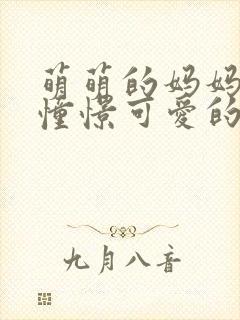 萌萌的妈妈
憧憬可爱的
九月八音